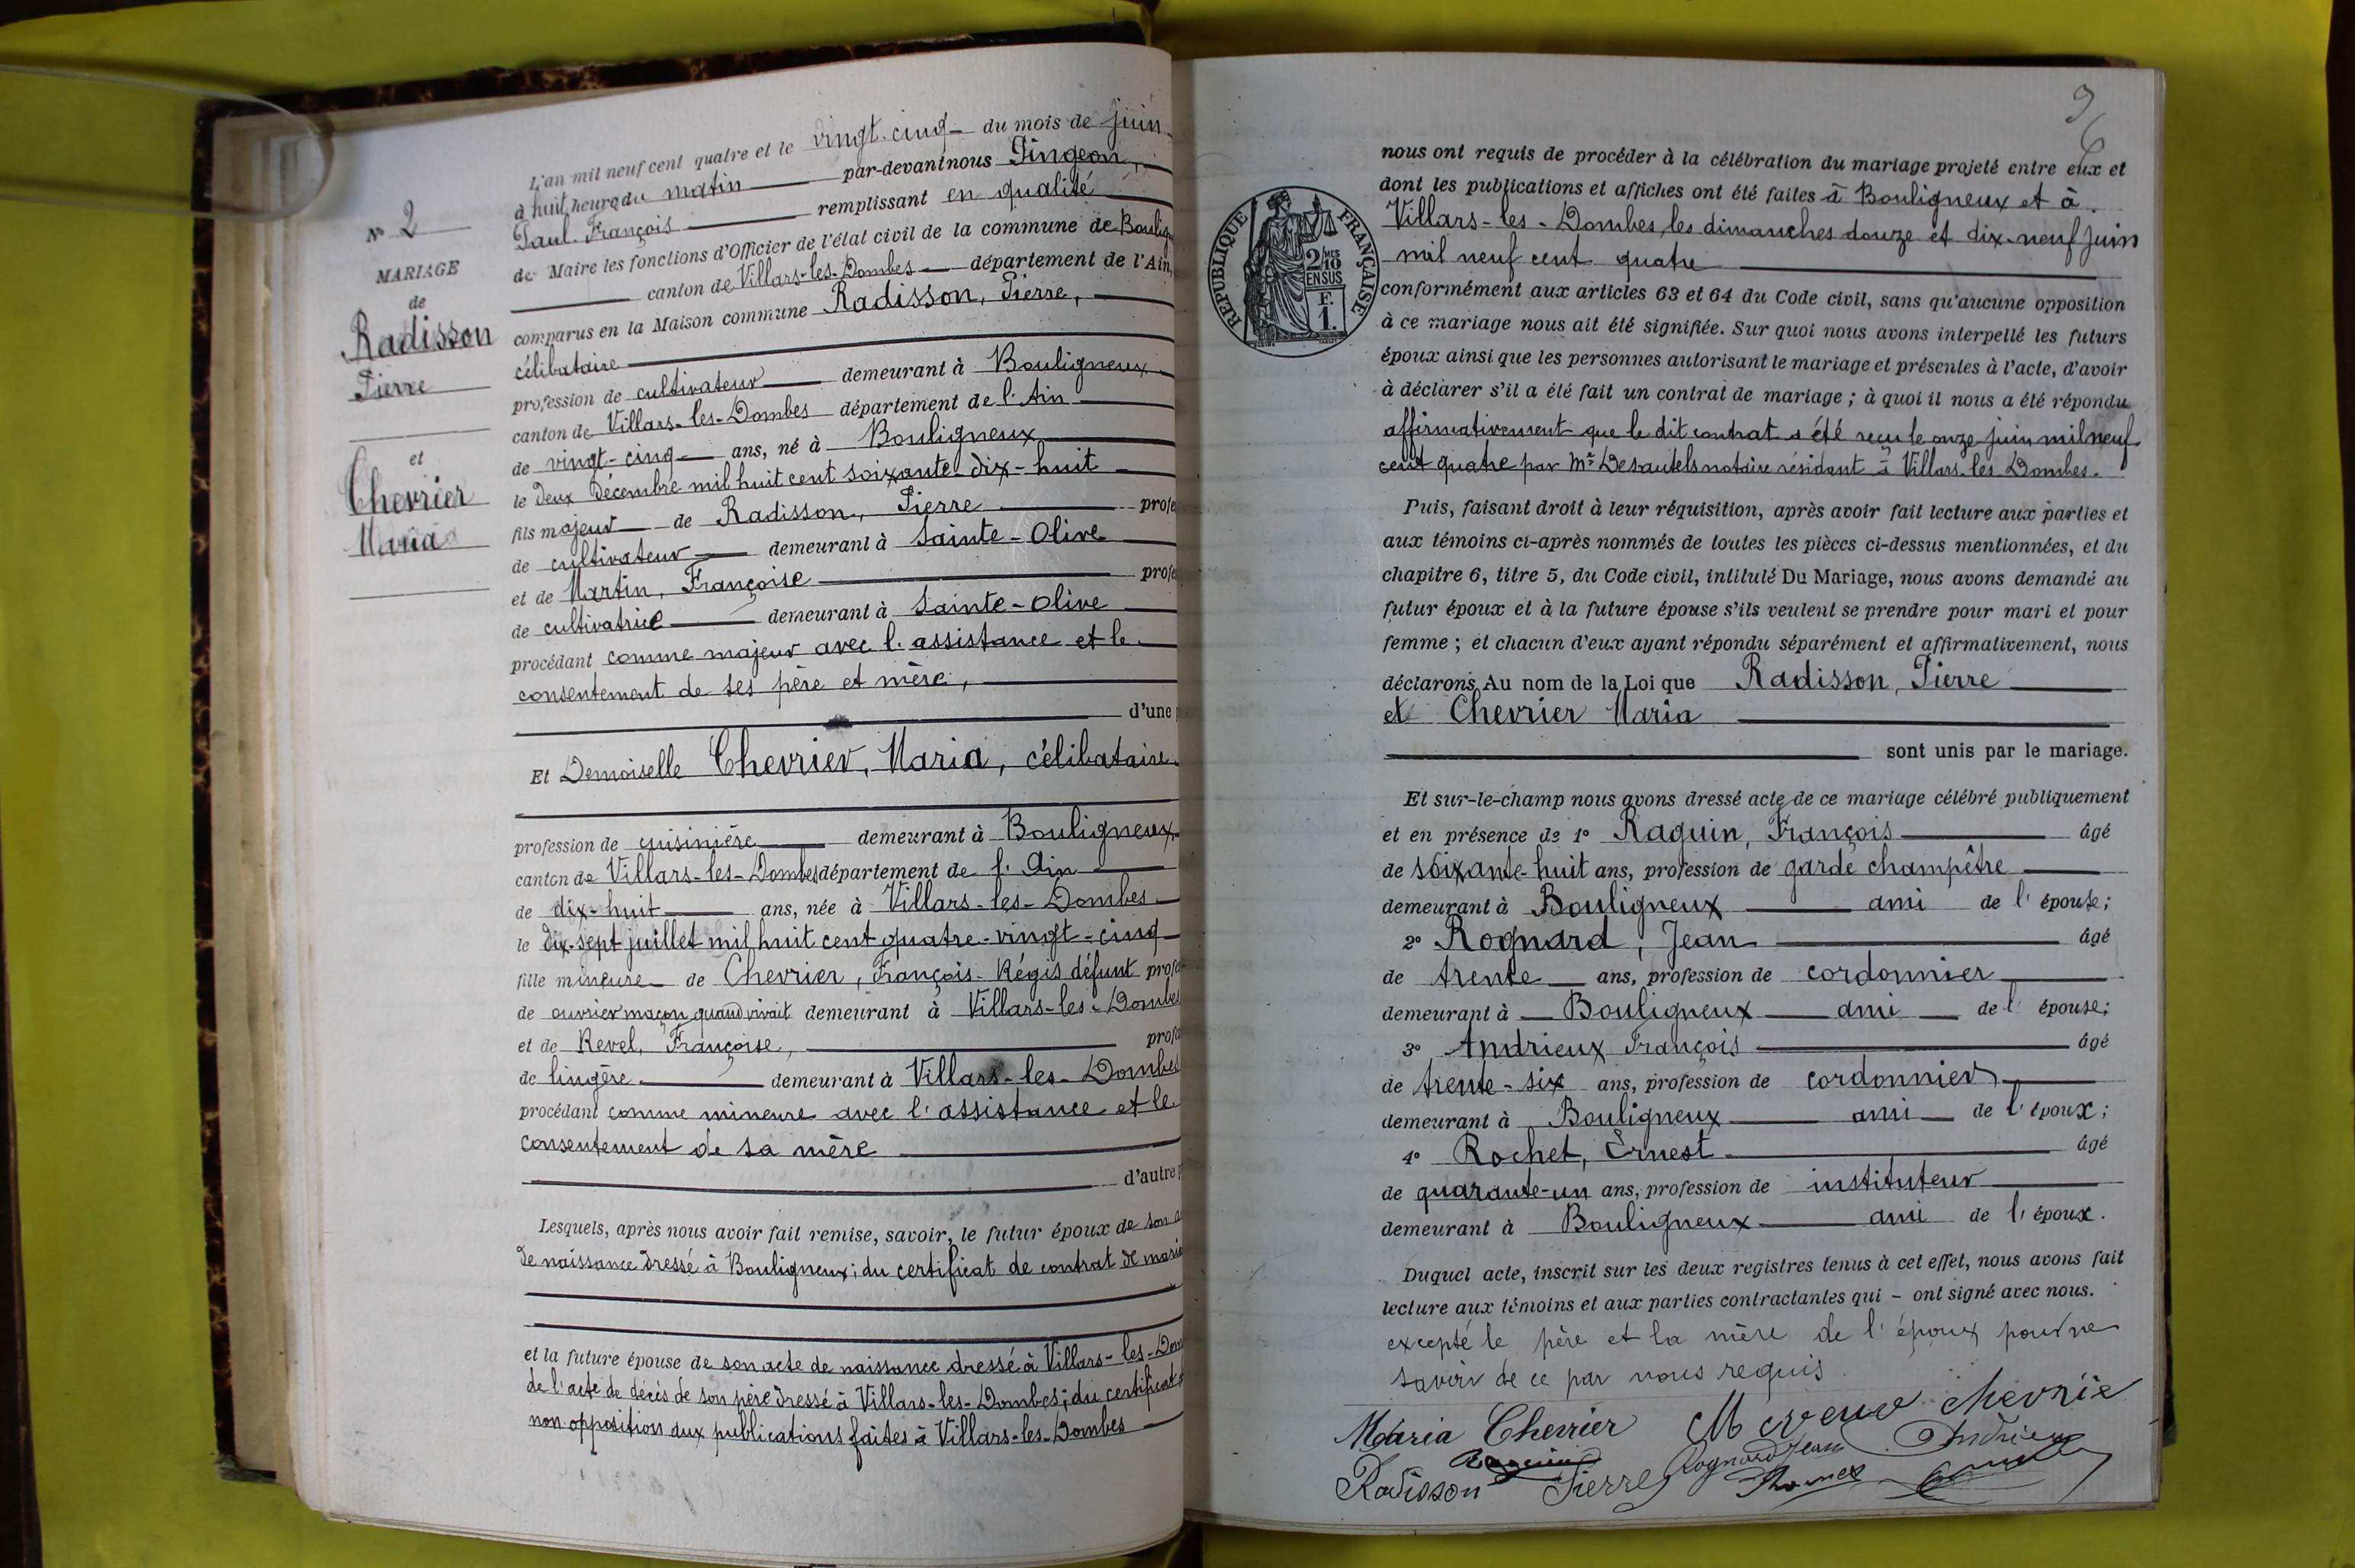 L'an mil neuf cent quatre et le vingt-cinq du mois de juin
à huit heures du matin par-devant nous Pingeon,
Paul François remplissant en qualité
de Maire les fonctions d'Officier de l'état civil de la commune de Boulign
canton de Villars-les-Dombes département de l'Ain,
comparus en la Maison commune Radisson, Pierre,
célibataire
profession de cultivateur demeurant à Bouligneux
canton de Villars-les-Dombes département de l'Ain
de vingt-cinq ans, né à Bouligneux
le deux décembre mil huit cent soixante-dix-huit
fils majeur de Radisson, Pierre profe
de cultivateur demeurant à Sainte-Olive
et de Martin, Françoise profe
de cultivatrice demeurant à Sainte-Olive
procédant comme majeur avec l'assistance et le
consentement de ses père et mère,
d'une
Et Demoiselle Chevrier, Maria, célibataire
profession de cuisinière demeurant à Bouligneux
canton de Villars-les-Dombes département de l'Ain
de dix-huit ans, née à Villars-les-Dombes
le dix-sept juillet mil huit cent quatre-vingt-cinq
fille mineure de Chevrier, François-Régis défunt profe
de ouvrier maçon quand vivait demeurant à Villars-les-Dombes
et de Revel, Françoise, profe
de lingère demeurant à Villars-les-Dombes
procédant comme mineure avec l'assistance et le
consentement de sa mère
d'autre p
Lesquels, après nous avoir fait remise, savoir, le futur époux de son a
de naissance dressé à Bouligneux; du certificat de contrat de maria
et la future épouse de son acte de naissance dressé à Villars-les-Dom
de l'acte de décès de son père dressé à Villars-les-Dombes; du certificat
non opposition aux publications faites à Villars-les-Dombes
N° 2
MARIAGE
de
Radisson
Pierre
et
Chevrier
Maria
96
nous ont requis de procéder à la célébration du mariage projeté entre eux et
dont les publications et affiches ont été faites à Bouligneux et à
Villars-les-Dombes, les dimanches douze et dix-neuf juin
mil neuf cent quatre
conformément aux articles 63 et 64 du Code civil, sans qu'aucune opposition
à ce mariage nous ait été signifiée. Sur quoi nous avons interpellé les futurs
époux ainsi que les personnes autorisant le mariage et présentes à l'acte, d'avoir
à déclarer s'il a été fait un contrat de mariage ; à quoi il nous a été répondu
affirmativement que le dit contrat a été reçu le onze juin mil neuf
cent quatre par Me Desautels notaire résidant à Villars les Dombes.
Puis, faisant droit à leur réquisition, après avoir fait lecture aux parties et
aux témoins ci-après nommés de toutes les pièces ci-dessus mentionnées, et du
chapitre 6, titre 5, du Code civil, intitulé Du Mariage, nous avons demandé au
futur époux et à la future épouse s'ils veulent se prendre pour mari et pour
femme ; et chacun d'eux ayant répondu séparément et affirmativement, nous
déclarons Au nom de la Loi que Radisson, Pierre
et Chevrier Maria
sont unis par le mariage.
Et sur-le-champ nous avons dressé acte de ce mariage célébré publiquement
et en présence de 1° Raguin, François âgé
de soixante-huit ans, profession de garde champêtre
demeurant à Bouligneux ami de l'épouse;
2° Rognard, Jean âgé
de trente ans, profession de cordonnier
demeurant à Bouligneux ami de l'épouse;
3° Andrieux François âgé
de trente-six ans, profession de cordonnier
demeurant à Bouligneux ami de l'époux;
4° Rochet, Ernest âgé
de quarante-un ans, profession de instituteur
demeurant à Bouligneux ami de l'époux.
Duquel acte, inscrit sur les deux registres tenus à cet effet, nous avons fait
lecture aux témoins et aux parties contractantes qui - ont signé avec nous.
excepté le père et la mère de l'époux pour ne
savoir de ce par nous requis.
Maria Chevrier M veuve chevrie
Raguin Rognard Jean Andrieux
Radisson Pierre
RÉPUBLIQUE FRANÇAISE
2/10 MES
EN SUS
F.
1.